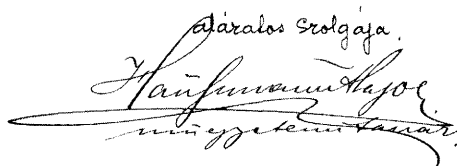 alázatos szolgája
Hauszmann Alajos
műegyetemi tanár.